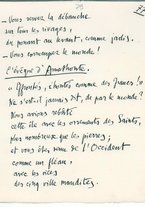 — Vous suivez la débauche
sur tous les rivages,
du ponant au levant, comme jadis.
— Vous corrompez le monde !
l'évêque d'Amathonte.
"Apostes, chantés comme des Juives !"
Ne s'est-il jamais dit, de par le monde ?
Vous aviez rebâti
cette île avec les ornements des Saints,
plus nombreuse que les pierres ;
et vous êtes venue de l'Occident
comme un fléau,
avec les vices
des cinq villes maudites.